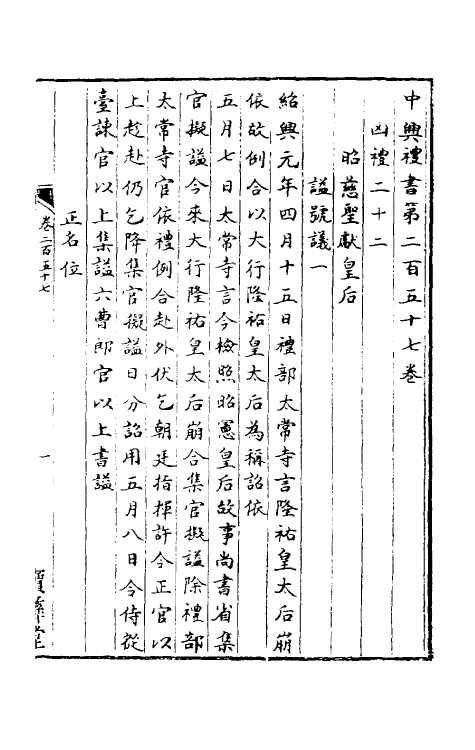 中興禮書第二百五十七卷
凶禮二十二
昭慈聖獻皇后
謚號議一
紹興元年四月十五日禮部太常寺言隆祐皇太后崩
依故例合以大行隆祐皇太后為稱詔依
五月七日太常寺言今檢照昭憲皇后故事尚書省集
官擬謚今來大行隆祐皇太后崩合集官擬謚除禮部
太常寺官依禮例合赴外伏乞朝廷指揮許令正官以
上趁赴仍乞降集官擬謚日分詔用五月八日令侍從
臺諫官以上集謚六曹郎官以上書謚
正名位
卷二百五十七
一